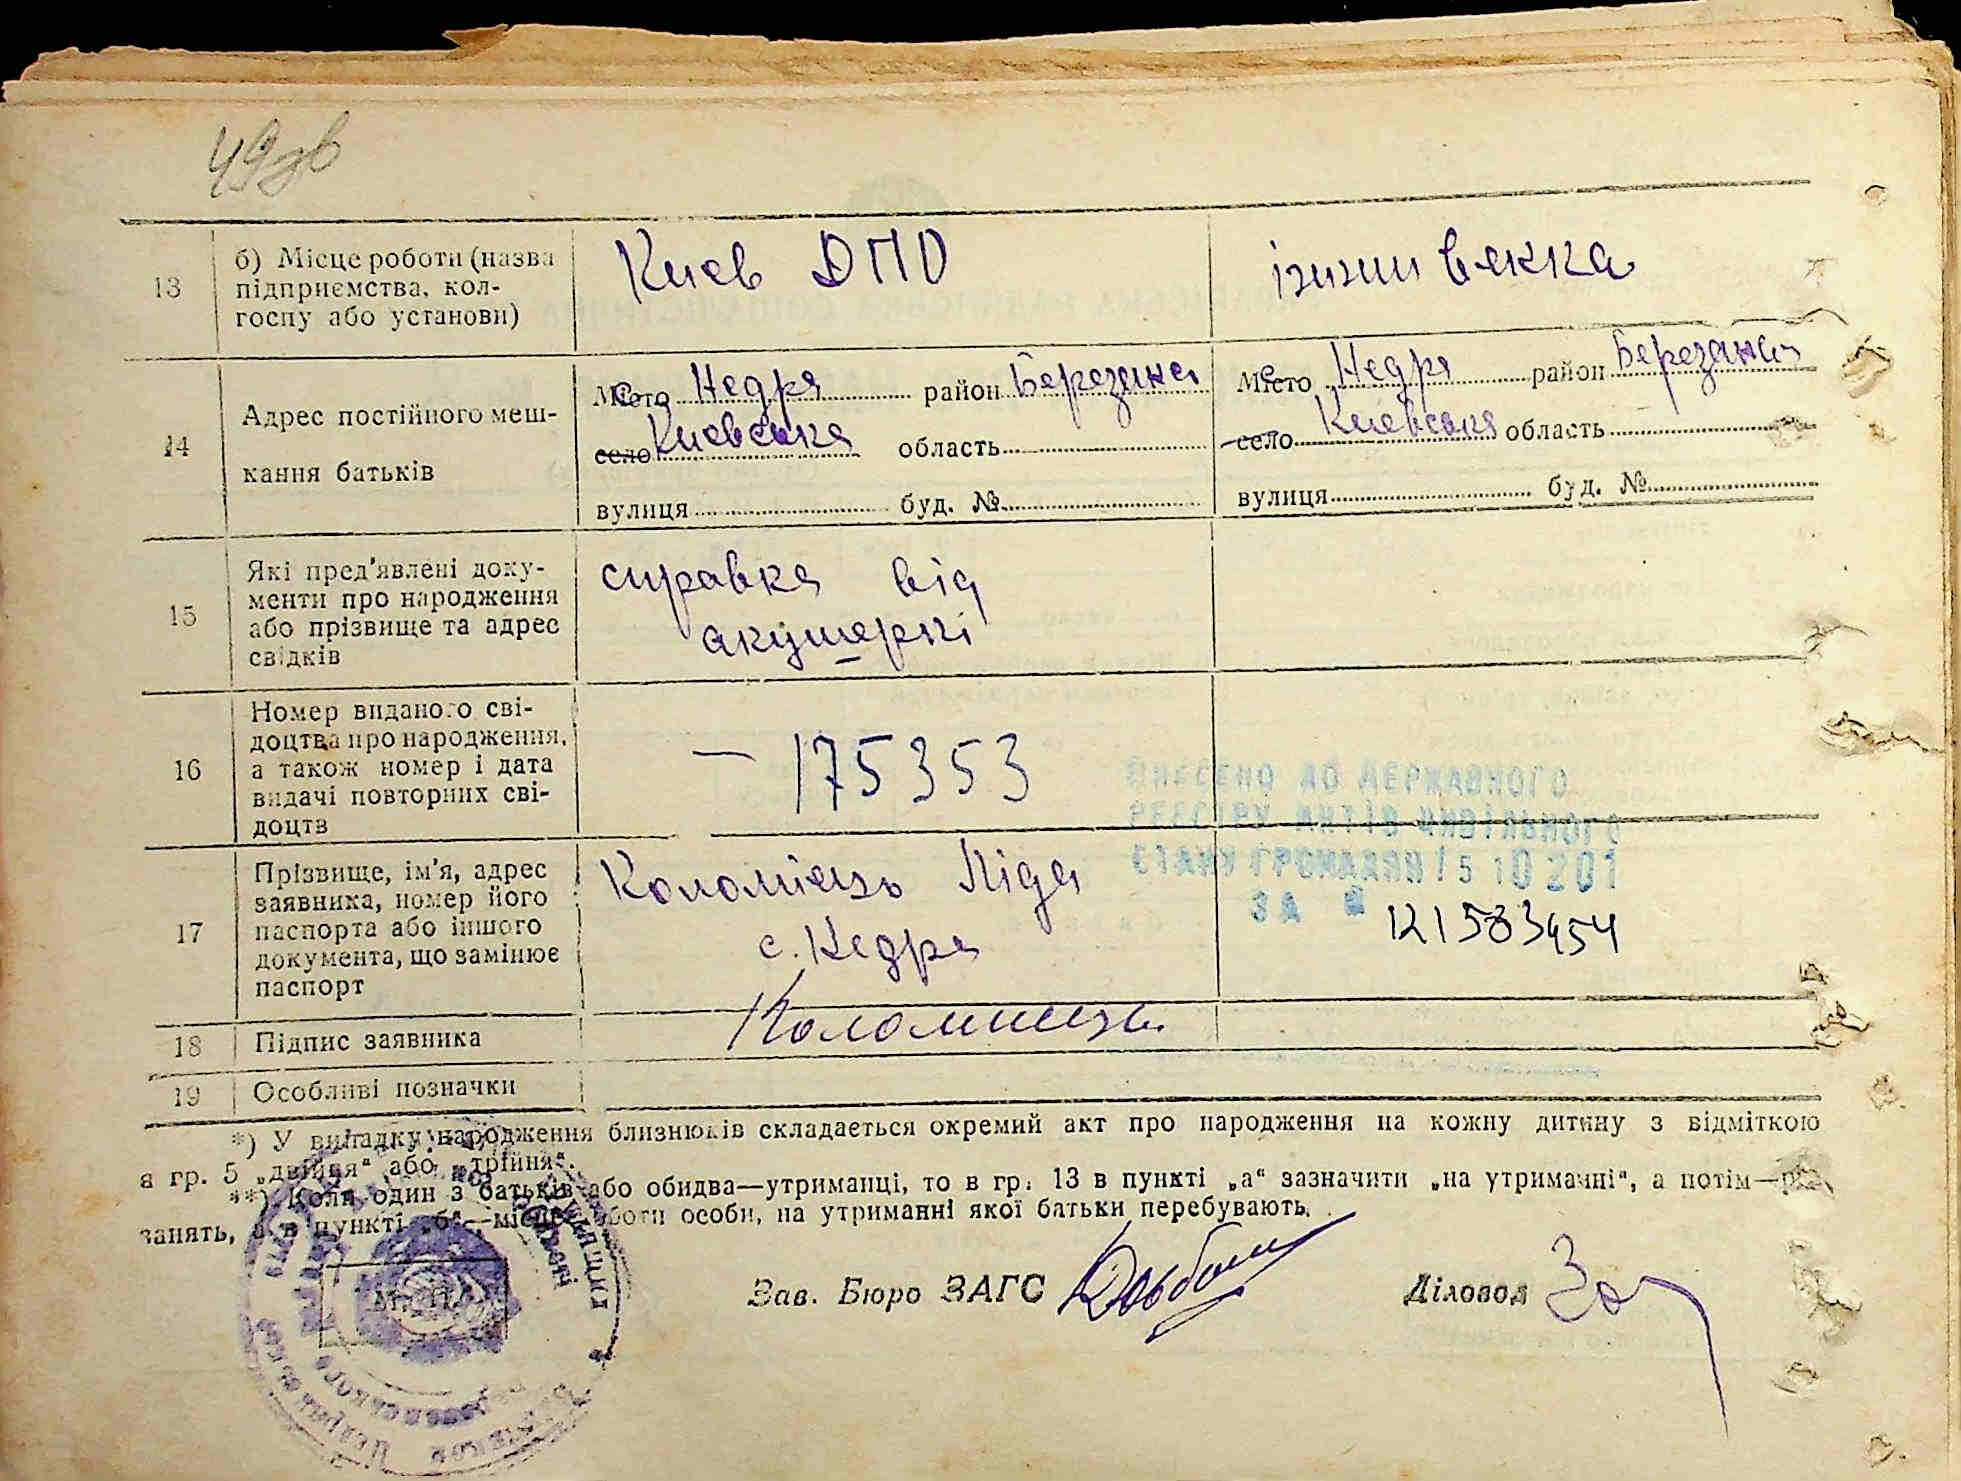 49зв
13
б) Місце роботи (назва
підприємства, кол-
госпу або установи)
Киев ДПО
14
Адрес постійного меш-
кання батьків
Місто Недря район Березана
село Киевська область
вулиця буд. №
Місто Недря район Березань
село Киевська область
вулиця буд. №
15
Які пред'явлені доку-
менти про народження
або прізвище та адрес
свідків
справка від
акушеркі
16
Номер виданого сві-
доцтва про народження,
а також номер і дата
видачі повторних сві-
доцтв
— 175353
ВНЕСЕНО ДО ДЕРЖАВНОГО
РЕЄСТРУ АКТІВ ЦИВІЛЬНОГО
СТАНУ ГРОМАДЯН 15 10 201
ЗА №
121583454
17
Прізвище, ім'я, адрес
заявника, номер його
паспорта або іншого
документа, що замінює
паспорт
Коломіець Ліда
с. Недря
18
Підпис заявника
Коломиець
19
Особливі позначки
*) У випадку народження близнюків складається окремий акт про народження на кожну дитину з відміткою
в гр. 5 „двійня“ або „трійня“.
**) Коли один з батьків або обидва—утриманці, то в гр. 13 в пункті „а“ зазначити „на утриманні“, а потім—рід
занять, а в пункті „б“—місце роботи особи, на утриманні якої батьки перебувають.
М. П.
Зав. Бюро ЗАГС
Діловод